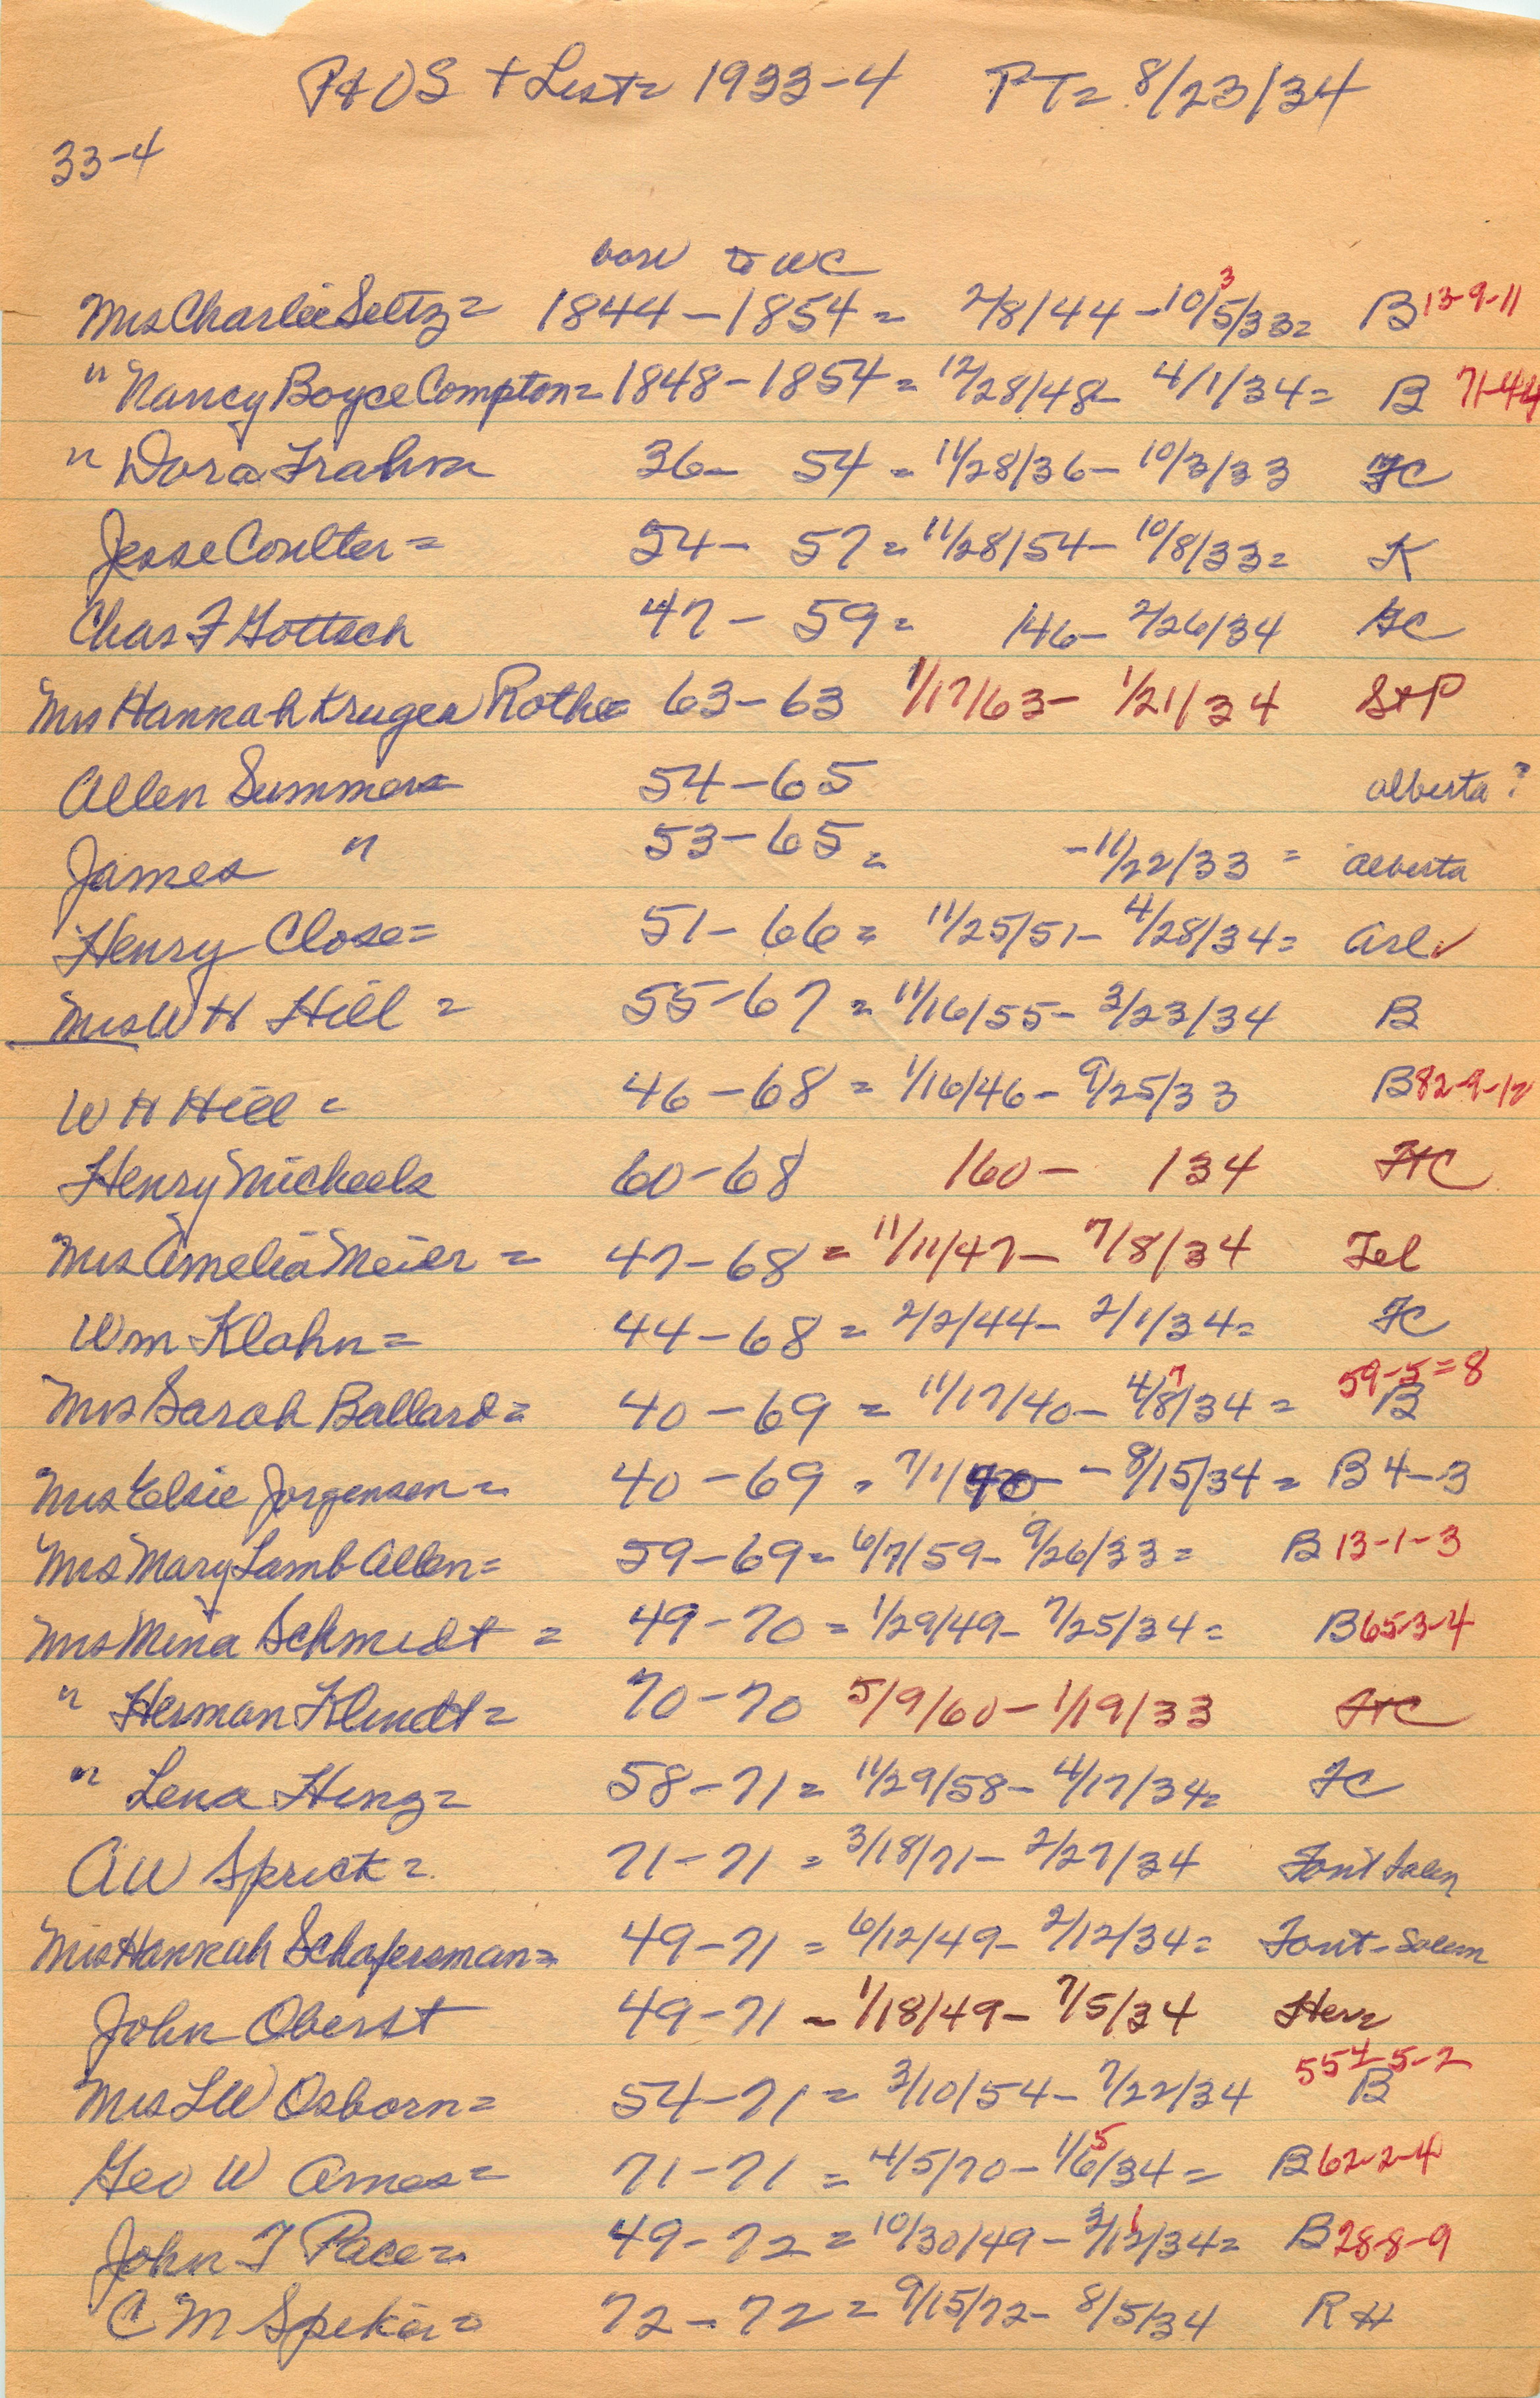 P+OS + List = 1933-4 PT= 8/23/34
33-4
born to WC
Mrs Charlie Seltz = 1844-1854 = 2/8/44 - 10/5/33 = 3 B 13-9-11
" Nancy Boyce Compton = 1848-1854 = 12/28/48- 4/1/34 = B 71-44
" Dora Frahm 36- 54 = 11/28/36- 10/3/33 FC
Jesse Coulter = 54- 57 = 11/28/54- 10/8/33 = K
Chas F Gottsch 47- 59 = 146- 2/26/34 FC
Mrs Hannah Kruger Rothe = 63-63 1/17/63- 1/21/34 S+P
Allen Summers 54-65 Alberta ?
James " 53-65 = -11/22/33 = Alberta
Henry Close = 51-66 = 11/25/51- 4/28/34 = Arl ✓
Mrs W H Hill = 55-67 = 11/16/55- 3/23/34 B
W H Hill = 46-68 = 1/16/46- 9/25/33 B 82-9-12
Henry Micheels 60-68 160- 134 FC
Mrs Amelia Meier = 47-68 = 11/11/47- 7/8/34 Tel
Wm Klahn = 44-68 = 2/2/44- 2/1/34 = FC
Mrs Sarah Ballard = 40-69 = 11/17/40- 4/8/34 = 7 B 59-5=8
Mrs Elsie Jorgensen = 40-69 = 7/1/40 - 8/15/34 = B 4-3
Mrs Mary Lamb Allen = 59-69 = 6/7/59- 9/26/33 = B 13-1-3
Mrs Mina Schmidt = 49-70 = 1/29/49- 7/25/34 = B 65-3-4
" Herman Klindt = 70-70 5/9/60- 1/19/33 FC
" Lena Hinz = 58-71 = 11/29/58- 4/17/34 = FC
A W Sprick = 71-71 = 3/18/71- 2/27/34 Font Salem
Mrs Hannah Schafersman = 49-71 = 6/12/49- 2/12/34 = Font-Salem
John Oberst 49-71 - 1/18/49- 7/5/34 Her
Mrs L W Osborn = 54-71 = 3/10/54- 7/22/34 B 554-5-2
Geo W Ames = 71-71 = 4/5/70- 1/6/34 = 5 B 62-2-4
John T Pace = 49-72 = 10/30/49- 3/12/34 = 1 B 28-8-9
C M Speker = 72-72 = 9/15/72- 8/5/34 R H